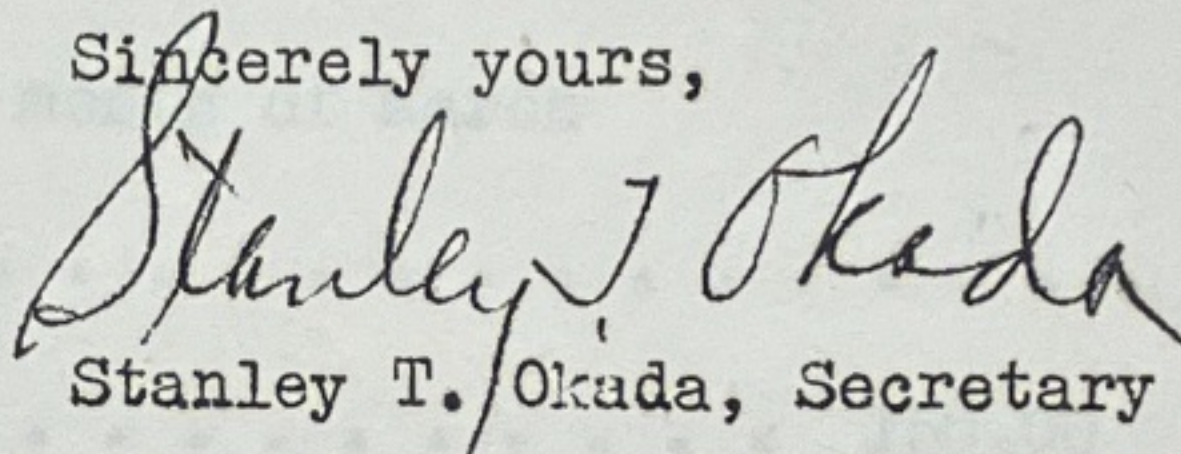 Sincerely yours,
Stanley T. Okada
Stanley T. Okada, Secretary